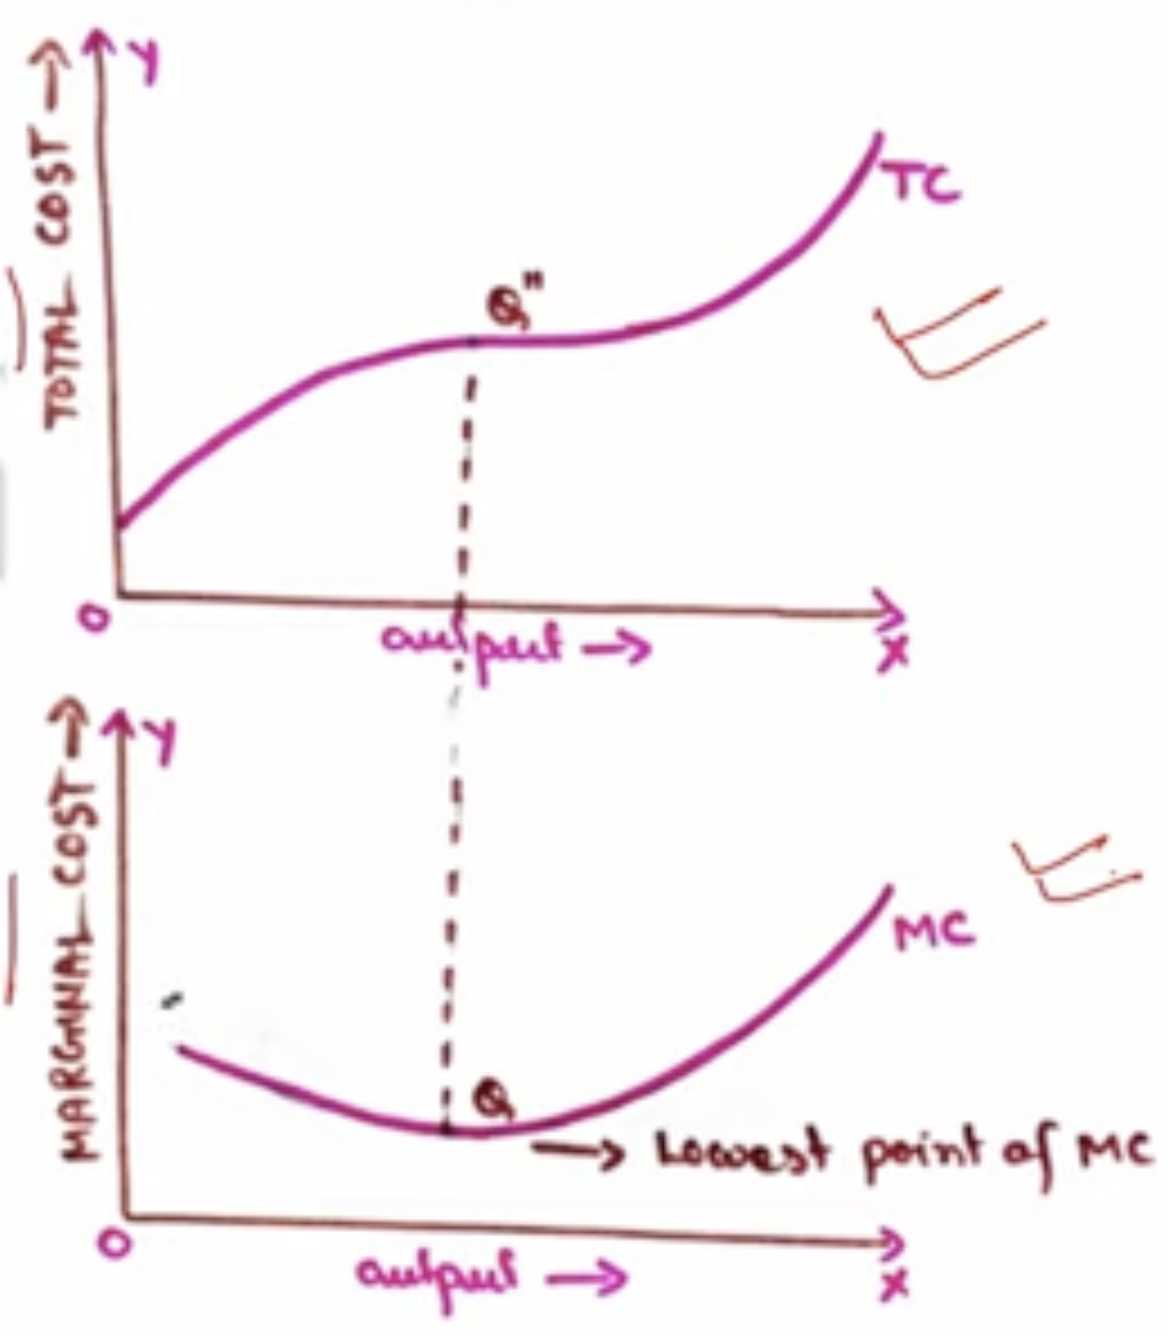 Y
TOTAL COST →
TC
Q"
O
output →
X
Y
MARGINAL COST →
MC
Q
→ Lowest point of MC
O
output →
X